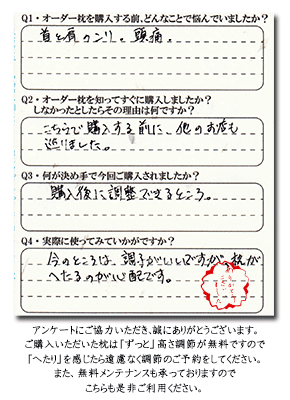 Q1・オーダー枕を購入する前、どんなことで悩んでいましたか？
首と肩のコリと頭痛。
Q2・オーダー枕を知ってすぐに購入しましたか？
しなかったとしたらその理由は何ですか？
こちらで購入する前に、他のお店も
巡りました。
Q3・何が決め手で今回ご購入されましたか？
購入後に調整できるところ。
Q4・実際に使ってみていかがですか？
今のところは、調子がいいですが、枕が
へたるのが心配です。
アンケートにご協力いただき、誠にありがとうございます。
ご購入いただいた枕は『ずっと』高さ調節が無料ですので
『へたり』を感じたら遠慮なく調節のご予約をしてください。
また、無料メンテナンスも承っておりますので
こちらも是非ご利用ください。